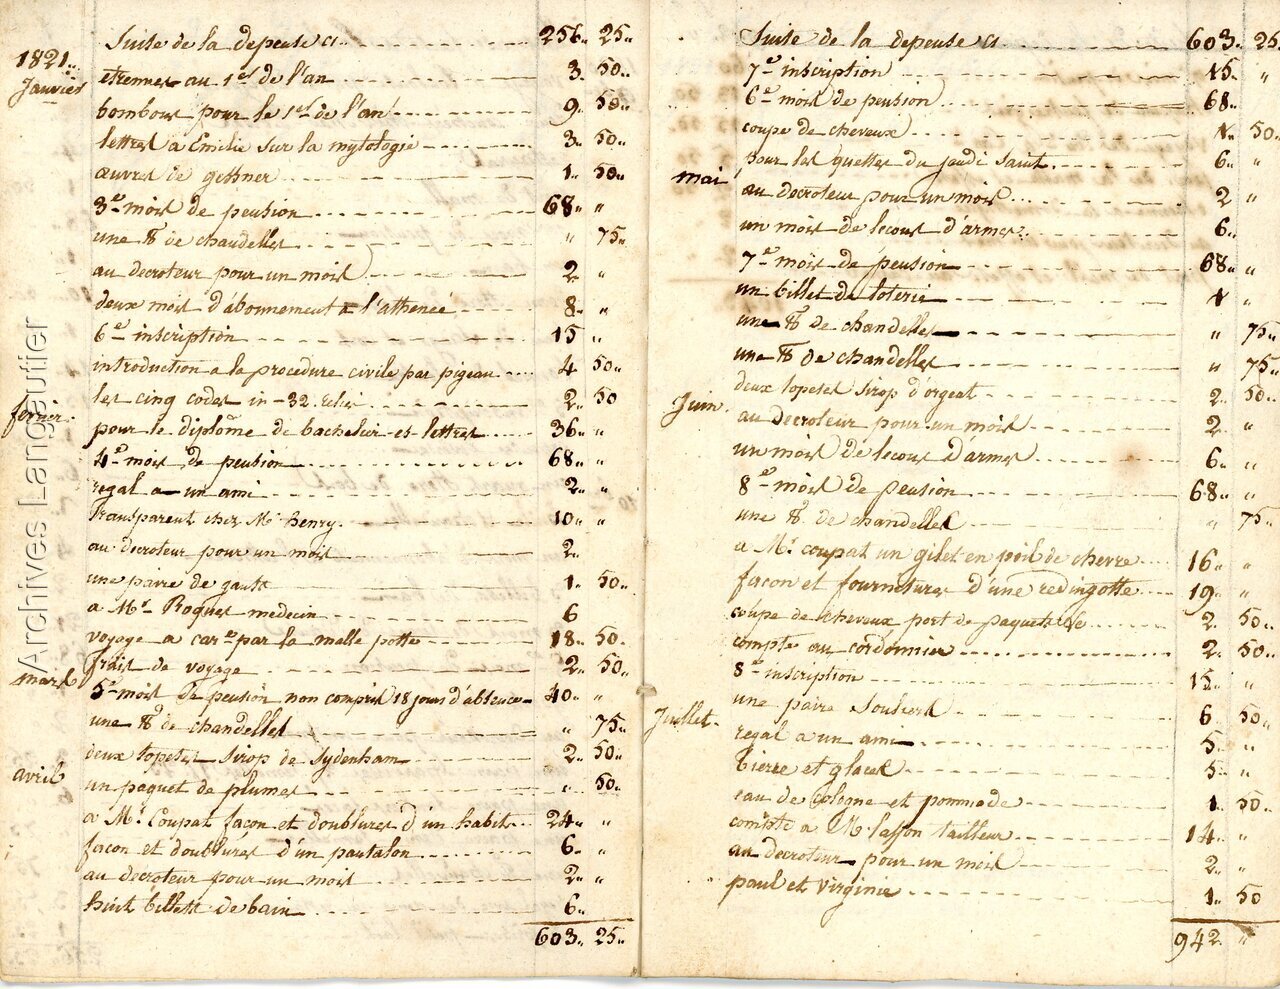 1821..
Janvier
Suite de la depense ci.. 256.. 25..
etrennes au 1er de l'an 3. 50..
bombons pour le 1er de l'an 9. 50..
lettres a Emilie sur la mytologie 3. 50..
œuvres de gessner 1.. 50..
3e mois de pension 68.. "
une ℔ de chandelles " 75..
au decroteur pour un mois 2.. "
deux mois d'abonnement a l'athenée 8.. "
6e inscription 15 "
introduction a la procedure civile par pigeau 4 50..
les cinq codes in-32. reliés 2.. 50
fevrier.
pour le diplôme de bachelier-es-lettres 36.. "
4e mois de pension 68.. "
regal a un ami 2.. "
transparent chez Mr henry. 10.. "
au decroteur pour un mois 2..
une paire de gants 1.. 50..
a Mr Roques medecin 6
voyage a carne par la malle poste 18.. 50.
frais de voyage 2.. 50..
mars
5e mois de pension non compris 18 jours d'absence 40.. "
une ℔ de chandelles " 75..
deux topetes sirop de sydenham 2.. 50..
avril
un paquet de plumes " 50..
a Mr Coupat façon et doublures d'un habit 24.. "
façon et doublures d'un pantalon 6.. "
au decroteur pour un mois 2.. "
huit billets de bain 6..
603.. 25..
Suite de la depense ci 603.. 25.
7e inscription 15.. "
6e mois de pension 68..
coupe de cheveux 1.. 50..
pour les quettes du jeudi saint. 6.. "
mai
au decroteur pour un mois 2 "
un mois de lecons d'armes 6..
7e mois de pension 68.. "
un billet de loterie 1 "
une ℔ de chandelles " 75..
une ℔ de chandelles " 75..
deux topetes sirop d'orgeat 2.. 50..
Juin.
au decroteur pour un mois 2.. "
un mois de lecons d'armes 6.. "
8e mois de pension 68.. "
une ℔ de chandelles " 75..
a Mr coupat un gilet en poil de chevre 16.. "
façon et fournitures d'une redingotte 19.. "
coupe de cheveux port de paquets 2.. 50..
compte au cordonnier 2.. 50..
8e inscription 15.. "
une paire souliers 6 50..
Juillet.
regal a un ami 5.. "
bierre et glaces 5.. "
eau de cologne et pommade 1.. 50..
compte a Mr lasson tailleur 14.. "
au decroteur pour un mois 2.. "
paul et virginie 1.. 50
942.. "
Archives Langautier